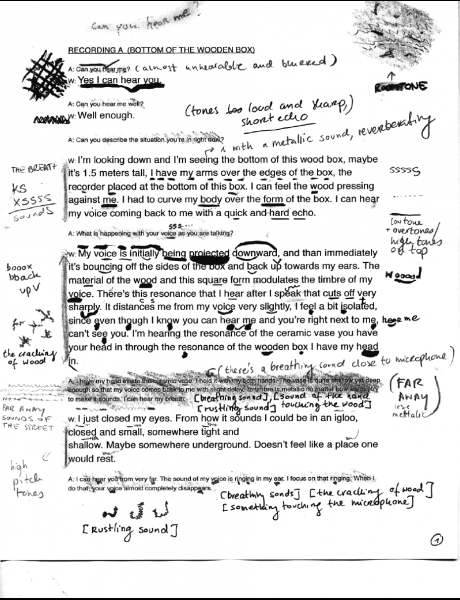 can you hear me?
RECORDING A (BOTTOM OF THE WOODEN BOX)
A: Can you hear me? (almost unhearable and blurred)
W: Yes I can hear you.
ROOMTONE
A: Can you hear me well?
W: Well enough.
(tones too loud and sharp,)
short echo
A: Can you describe the situation you're in right now?
with a metallic sound, reverberating
THE BREATH
KS
XSSSS
sounds
W: I'm looking down and I'm seeing the bottom of this wood box, maybe
it's 1.5 meters tall, I have my arms over the edges of the box, the
recorder placed at the bottom of this box. I can feel the wood pressing
against me. I had to curve my body over the form of the box. I can hear
my voice coming back to me with a quick and hard echo.
SSSSS
low tone
+ overtones/
high tones
on top
SSS
A: What is happening with your voice as you are talking?
W: My voice is initially being projected downward, and than immediately
it's bouncing off the sides of the box and back up towards my ears. The
material of the wood and this square form modulates the timbre of my
voice. There's this resonance that I hear after I speak that cuts off very
sharply. It distances me from my voice very slightly, I feel a bit isolated,
since even though I know you can hear me and you're right next to me, I
can't see you. I'm hearing the resonance of the ceramic vase you have
your head in through the resonance of the wooden box I have my head
in.
booox
bback
upV
Woood
the cracking
of wood
(there's a breathing sound close to microphone)
A: I have my head inside the ceramic vase. I hold it with my both hands. The vase is quite shallow yet deep
to make sounds. I can hear my breath.
[breathing sound], [sound of the hand
[rustling sound] touching the wood]
(FAR
AWAY)
less
metallic
FAR AWAY
SOUNDS OF
THE STREET
W: I just closed my eyes. From how it sounds I could be in an igloo,
closed and small, somewhere tight and
shallow. Maybe somewhere underground. Doesn't feel like a place one
would rest.
high
pitch
tones
A: I can hear you from very far. The sound of my voice is ringing in my ear. I focus on that ringing. When I
do that, your voice almost completely disappears.
[breathy sonds] [the cracking of wood]
[something touching the microphone]
[rustling sound]
1